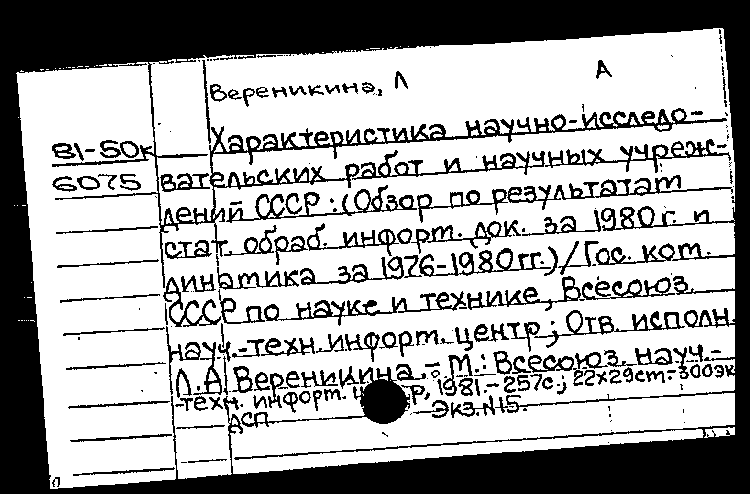 Вереникина, Л А
81-50к
6075
Характеристика научно-исследо-
вательских работ и научных учреж-
дений СССР: (Обзор по результатам
стат. обраб. информ. док. за 1980 г. и
динамика за 1976-1980 гг.) / Гос. ком.
СССР по науке и технике, Всесоюз.
науч.-техн. информ. центр; Отв. исполн.
Л.А. Вереникина. - М.: Всесоюз. науч.-
-техн. информ. 1981. - 257с.; 22х29cm. - 300эк
ДСП Экз. N15.